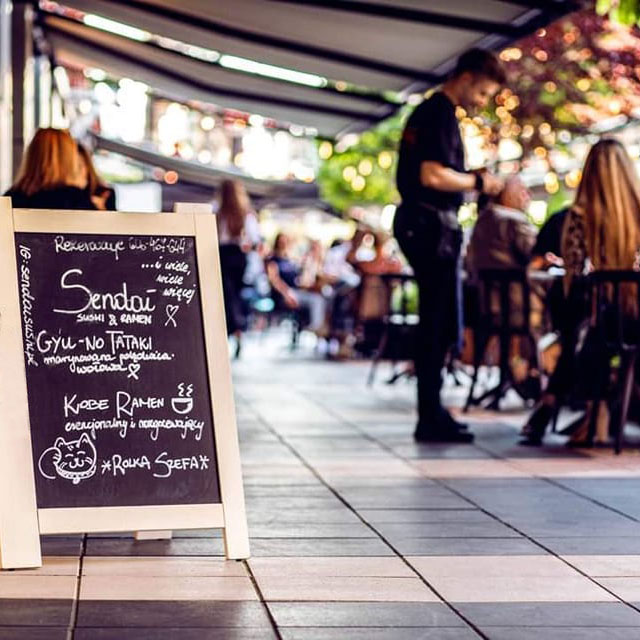 Rezerwacje 606-467-644
IG: sendai.sushi.pl
...i wiele,
wiele
więcej
Sendai
SUSHI & RAMEN
GYU-NO TATAKI
marynowana polędwica
wołowa
KOBE RAMEN
esencjonalny i rozgrzewający
*ROLKA SZEFA*